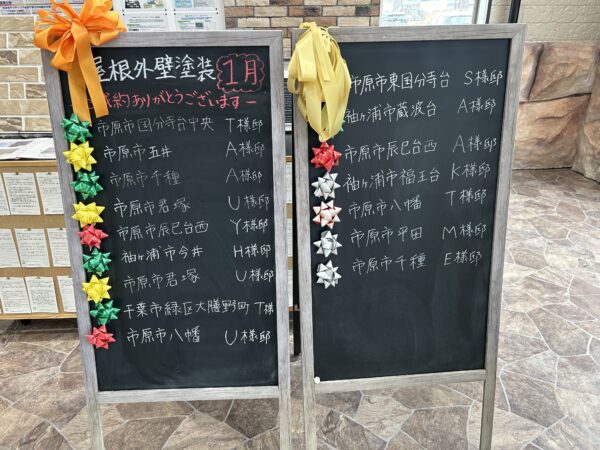 屋根外壁塗装 1月
ご成約ありがとうございますー
市原市国分寺台中央 T様邸
市原市五井 A様邸
市原市千種 A様邸
市原市君塚 U様邸
市原市辰巳台西 Y様邸
袖ヶ浦市今井 H様邸
市原市君塚 U様邸
千葉市緑区大膳野町 T様
市原市八幡 U様邸
市原市東国分寺台 S様邸
袖ヶ浦市蔵波台 A様邸
市原市辰巳台西 A様邸
袖ヶ浦市福王台 K様邸
市原市八幡 T様邸
市原市平田 M様邸
市原市千種 E様邸